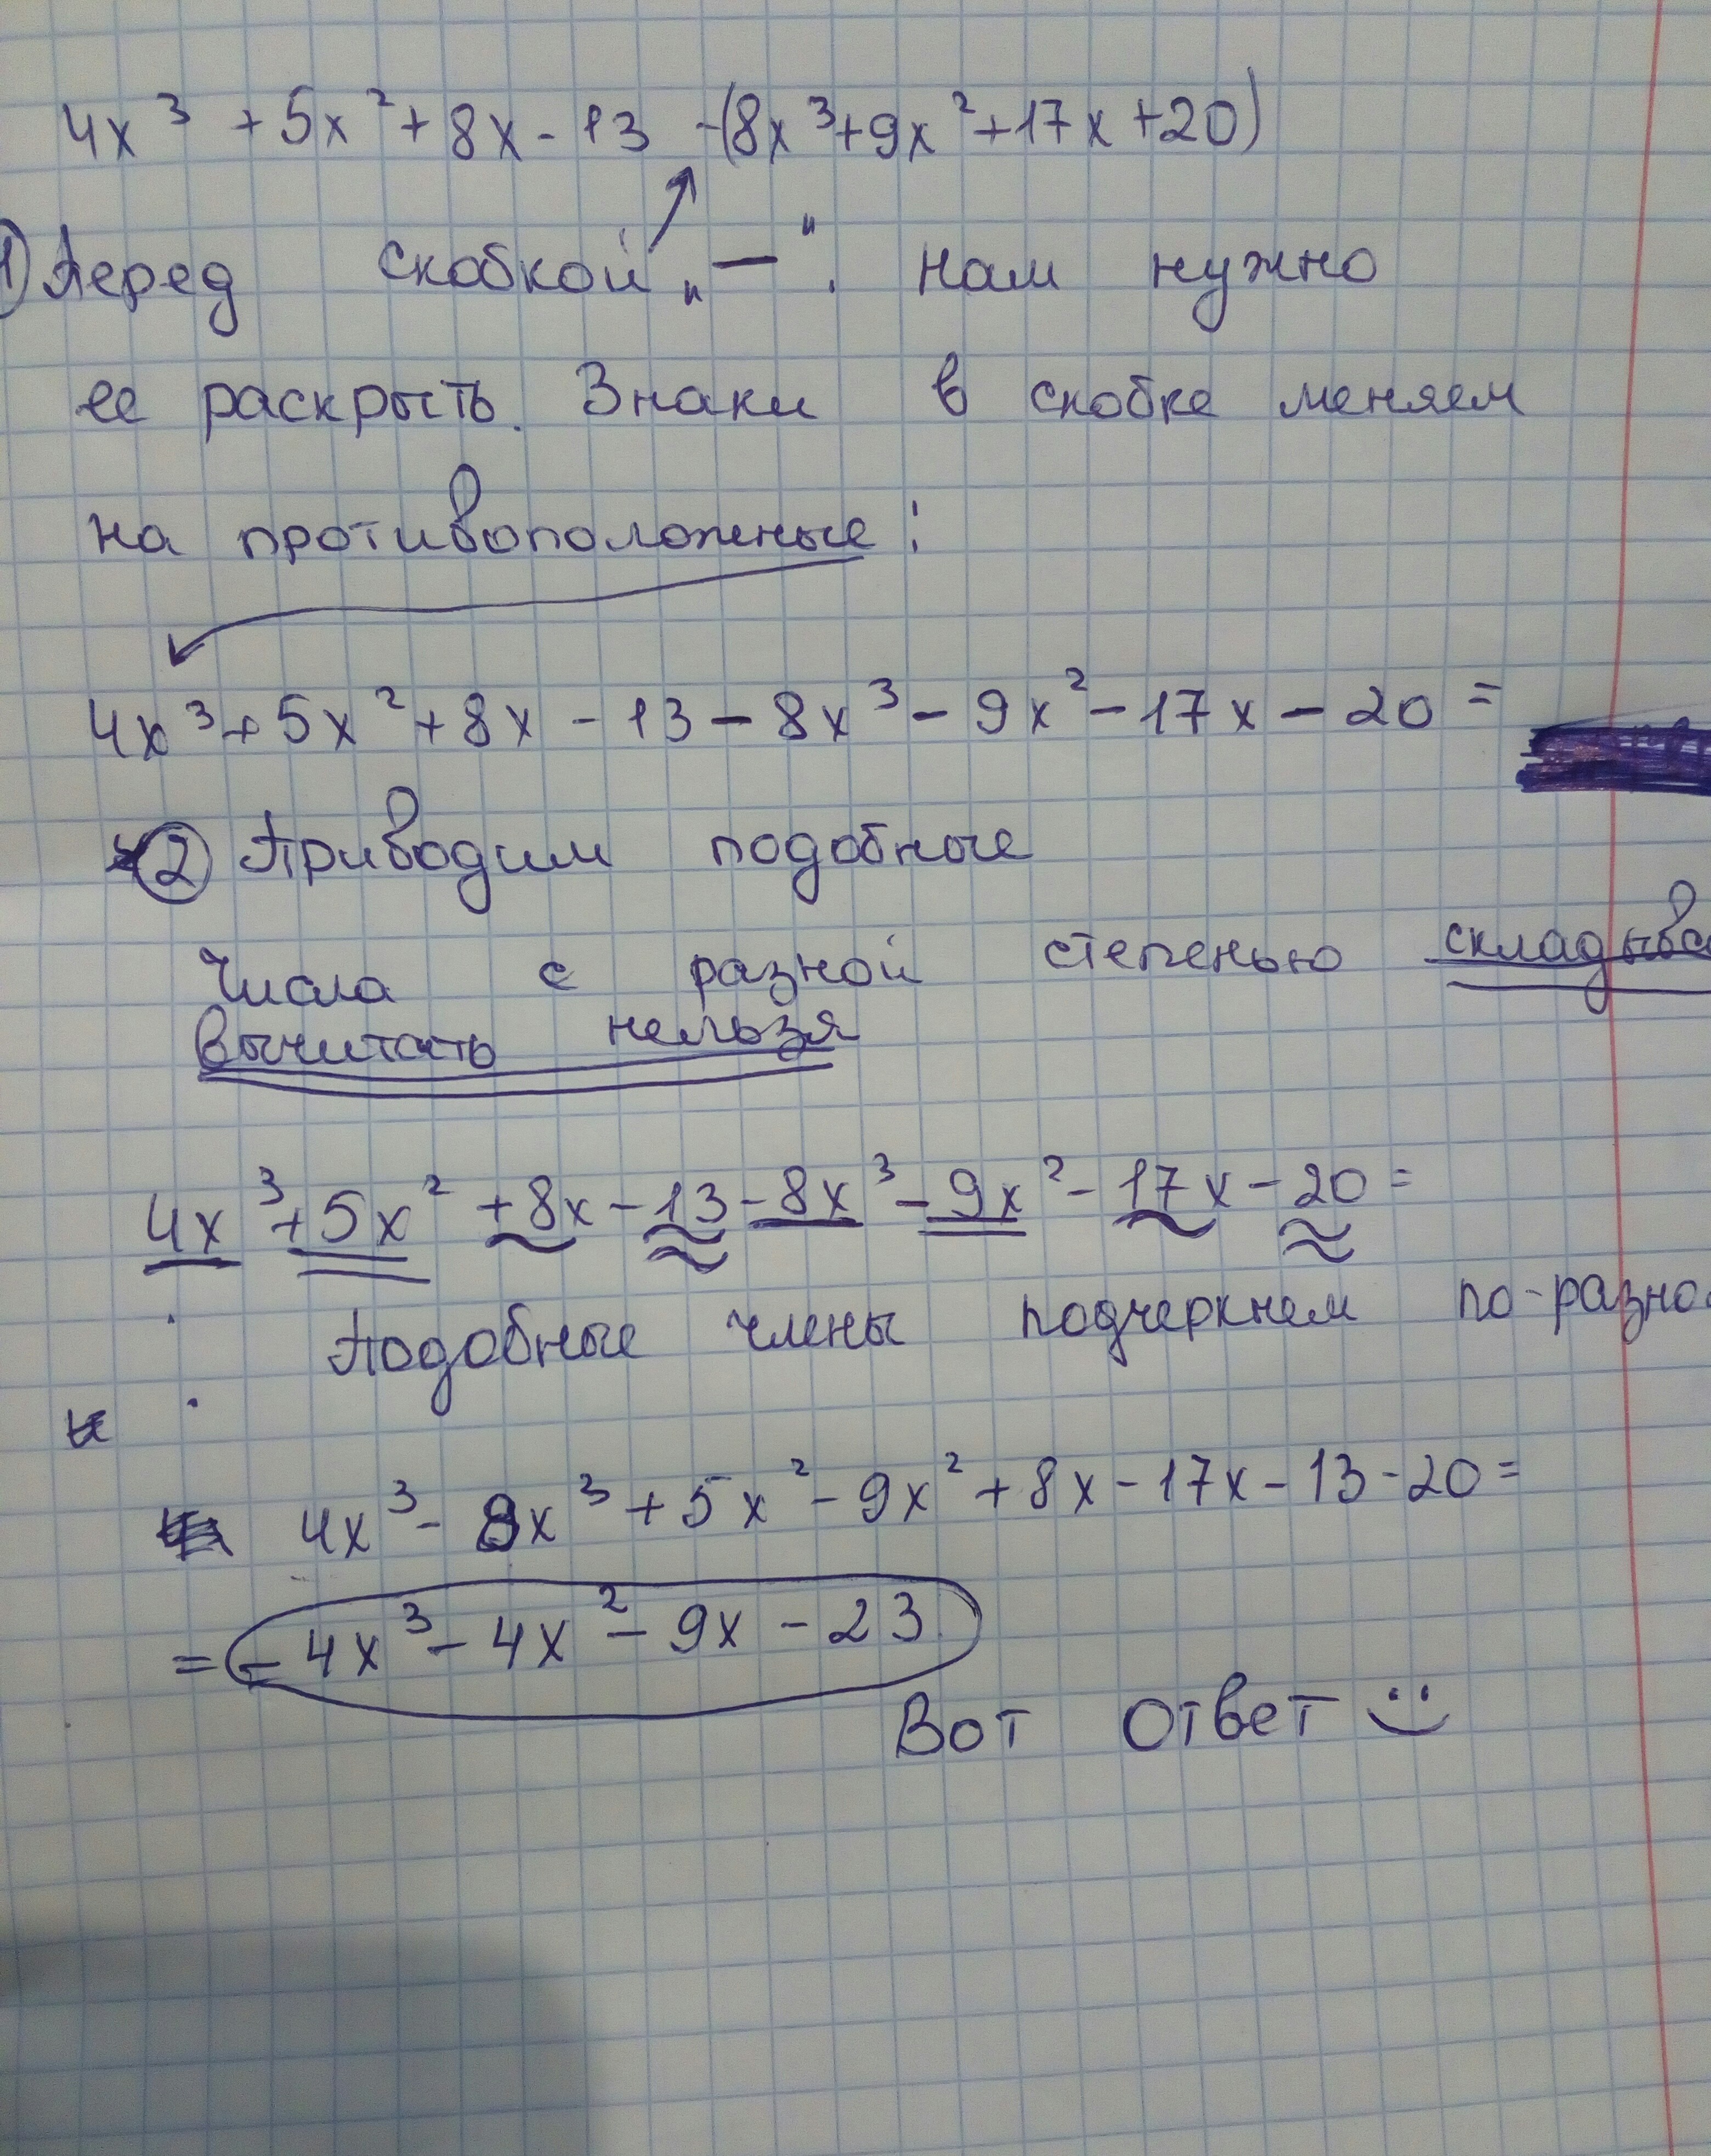 4x³ + 5x² + 8x - 13 -(8x³+9x²+17x+20)
1) Перед скобкой „—". Нам нужно
ее раскрыть. Знаки в скобке меняем
на противоположные:
4x³+5x²+8x - 13 - 8x³ - 9x² - 17x - 20 =
2 Приводим подобные
Числа с разной степенью складыва
вычитать нельзя
4x³+5x²+8x-13-8x³-9x²-17x-20=
Подобные члены подчеркнем по-разно
4x³- 8x³+5x²-9x²+8x-17x-13-20=
= -4x³-4x²-9x-23
Вот ответ :)